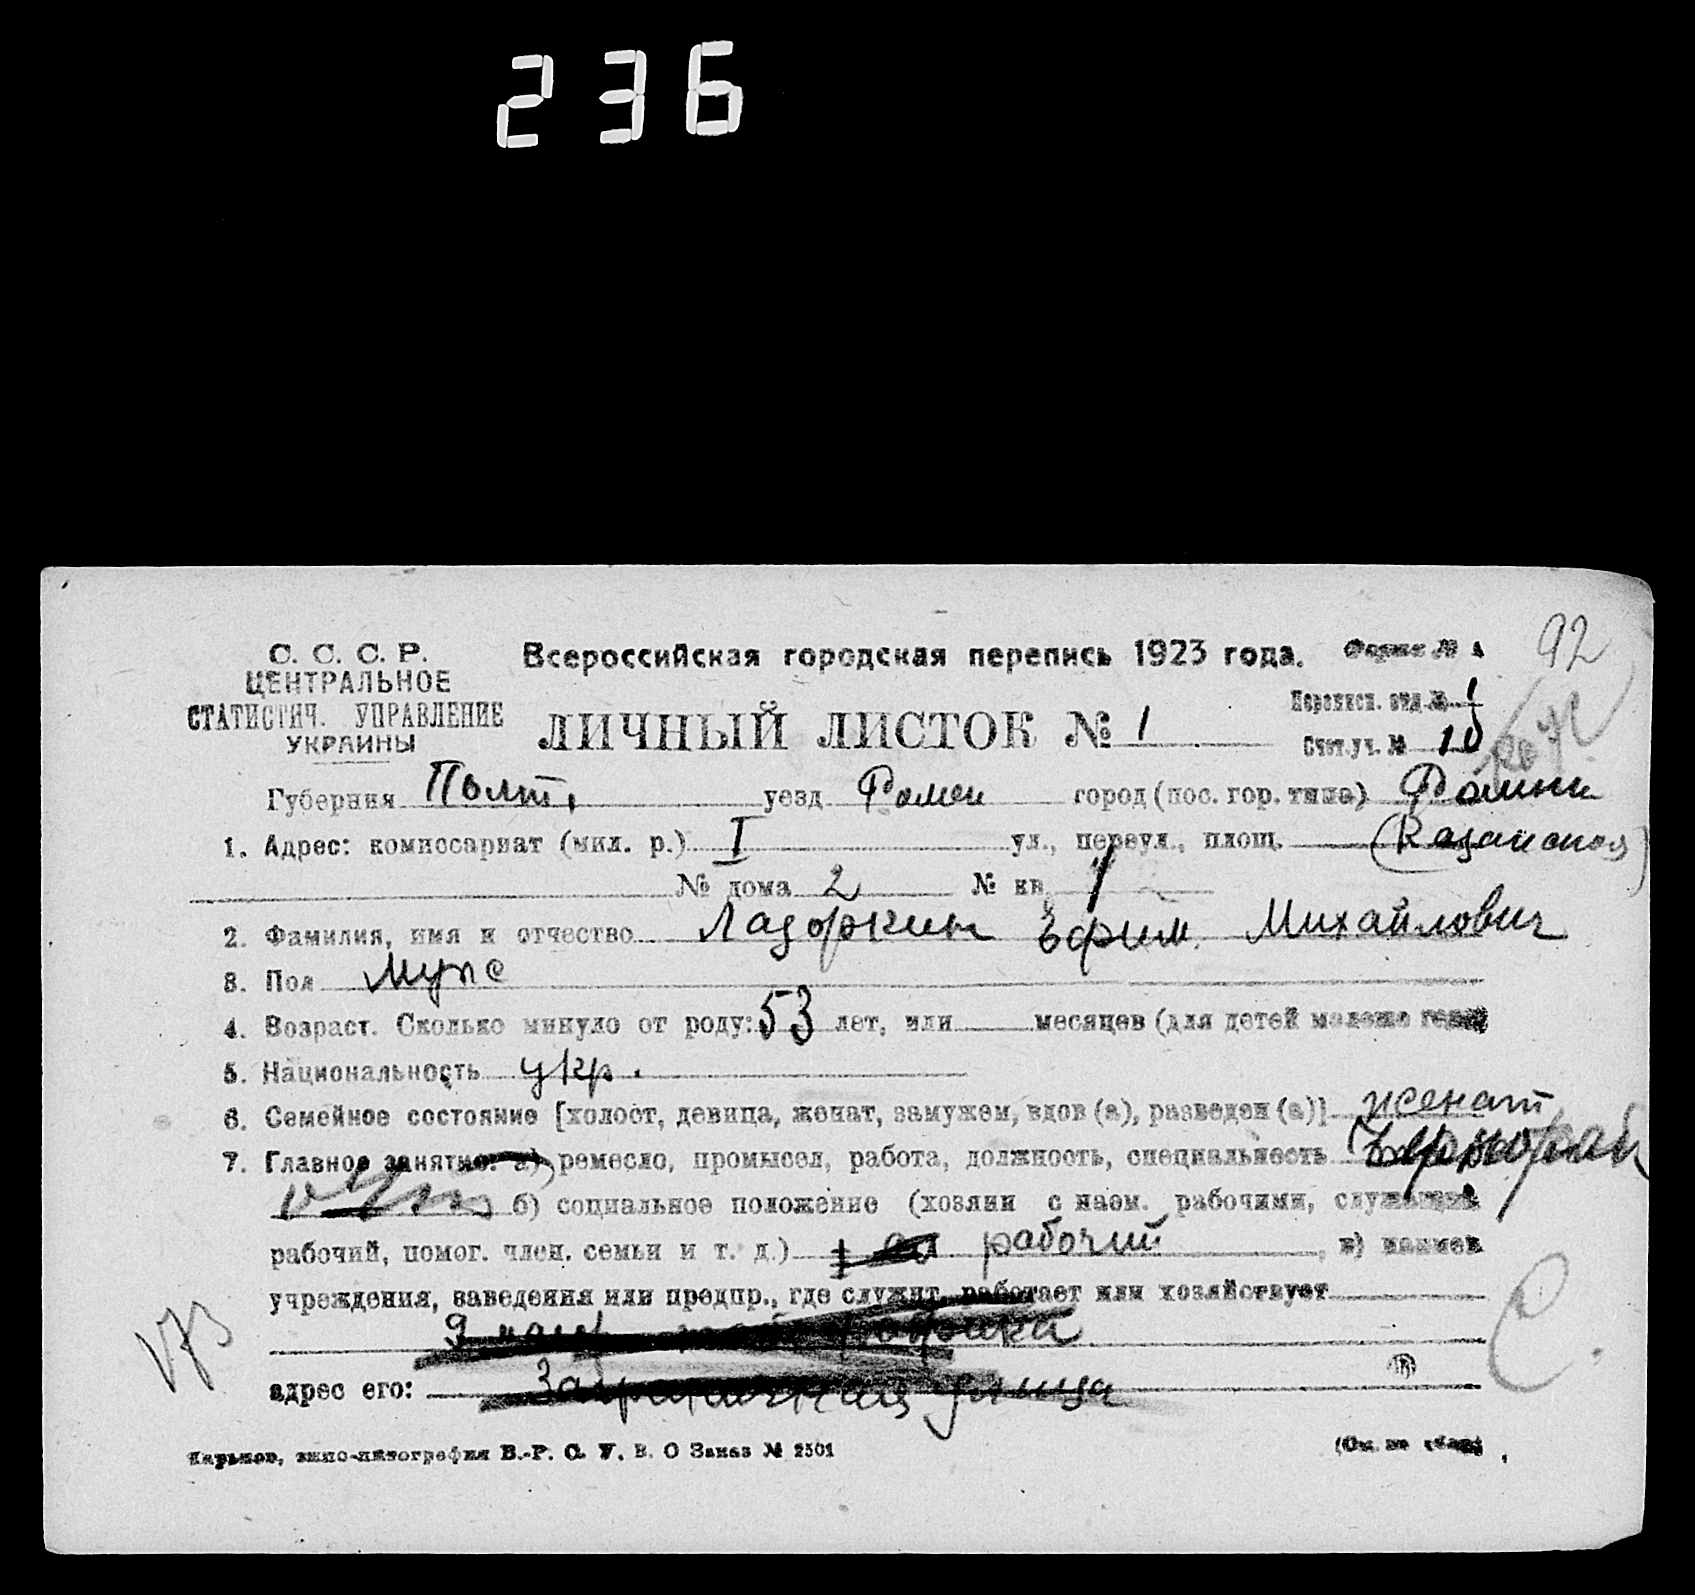 236
С. С. С. Р. Всероссийская городская перепись 1923 года. Форма № 1 92
ЦЕНТРАЛЬНОЕ
СТАТИСТИЧ. УПРАВЛЕНИЕ
УКРАИНЫ
Переписн. отд. № 1
ЛИЧНЫЙ ЛИСТОК № 1
Счет. уч. № 10
Губерния Полт. уезд Ромен город (пос. гор. типа) Ромны
1. Адрес: комиссариат (мил. р.) I ул., переул., площ. (Казанская)
№ дома 2 № кв. 1
2. Фамилия, имя и отчество Лазоркин Ефим Михайлович
3. Пол муж
4. Возраст. Сколько минуло от роду: 53 лет, или месяцев (для детей моложе года)
5. Национальность укр.
6. Семейное состояние [холост, девица, женат, замужем, вдов (а), разведен (а)] женат
7. Главное занятие: а) ремесло, промысел, работа, должность, специальность
б) социальное положение (хозяин с наем. рабочими, служащий
рабочий, помог. член. семьи и т. д.) рабочий, в) наимен
учреждения, заведения или предпр., где служит, работает или хозяйствует
фабрика
173
адрес его: улица
Харьков, типо-литография В.-Р. С. У. В. О Заказ № 2501
(См. на обор.)